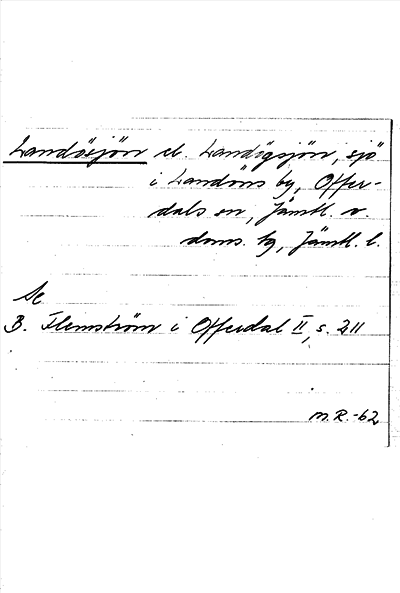 Landösjön el. Landögsjön, sjö
i Landöns by, Offer-
dals sn, Jämtl. v.
doms. hg, Jämtl. l.
Se
B. Flemström i Offerdal II, s. 211
M.R.-62